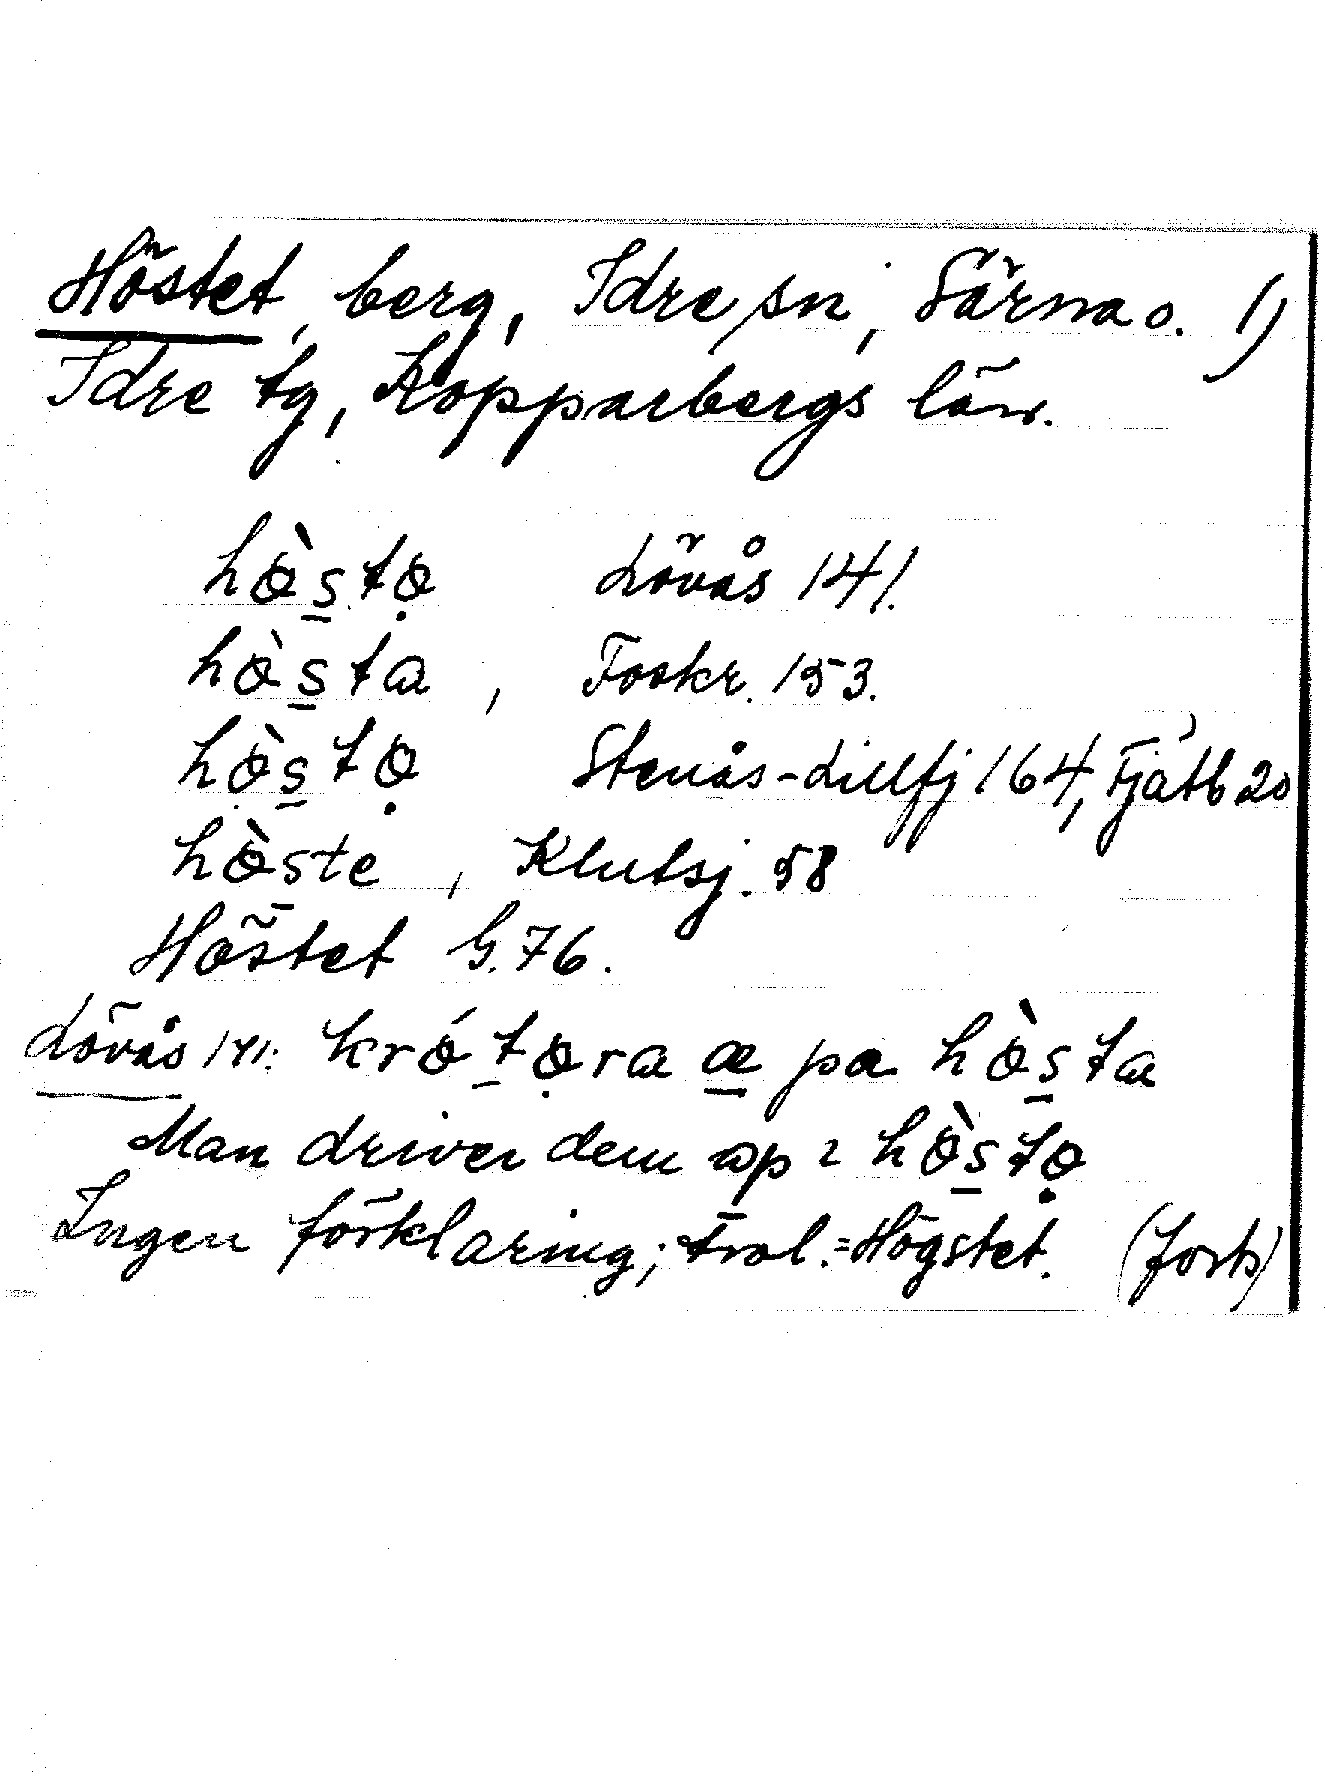 Höstet, berg, Idre sn, Särna o. 1)
Idre tg, Kopparbergs län.
hø̀s̲tø̣ Lövås 141.
hø̀s̲ta, Foskr. 153.
hø̣̀s̲tø̣ Stenås-Lillfj 164, Fjätb 20
hø̀s̲te, Klutsj. 58
Höstet G. 76.
Lövås 141: krǿt̲ø̣ra æ̲ pa hø̀s̲ta
Man driver dem op i hø̀s̲tø̣
Ingen förklaring; trol. = Högstet. (forts)